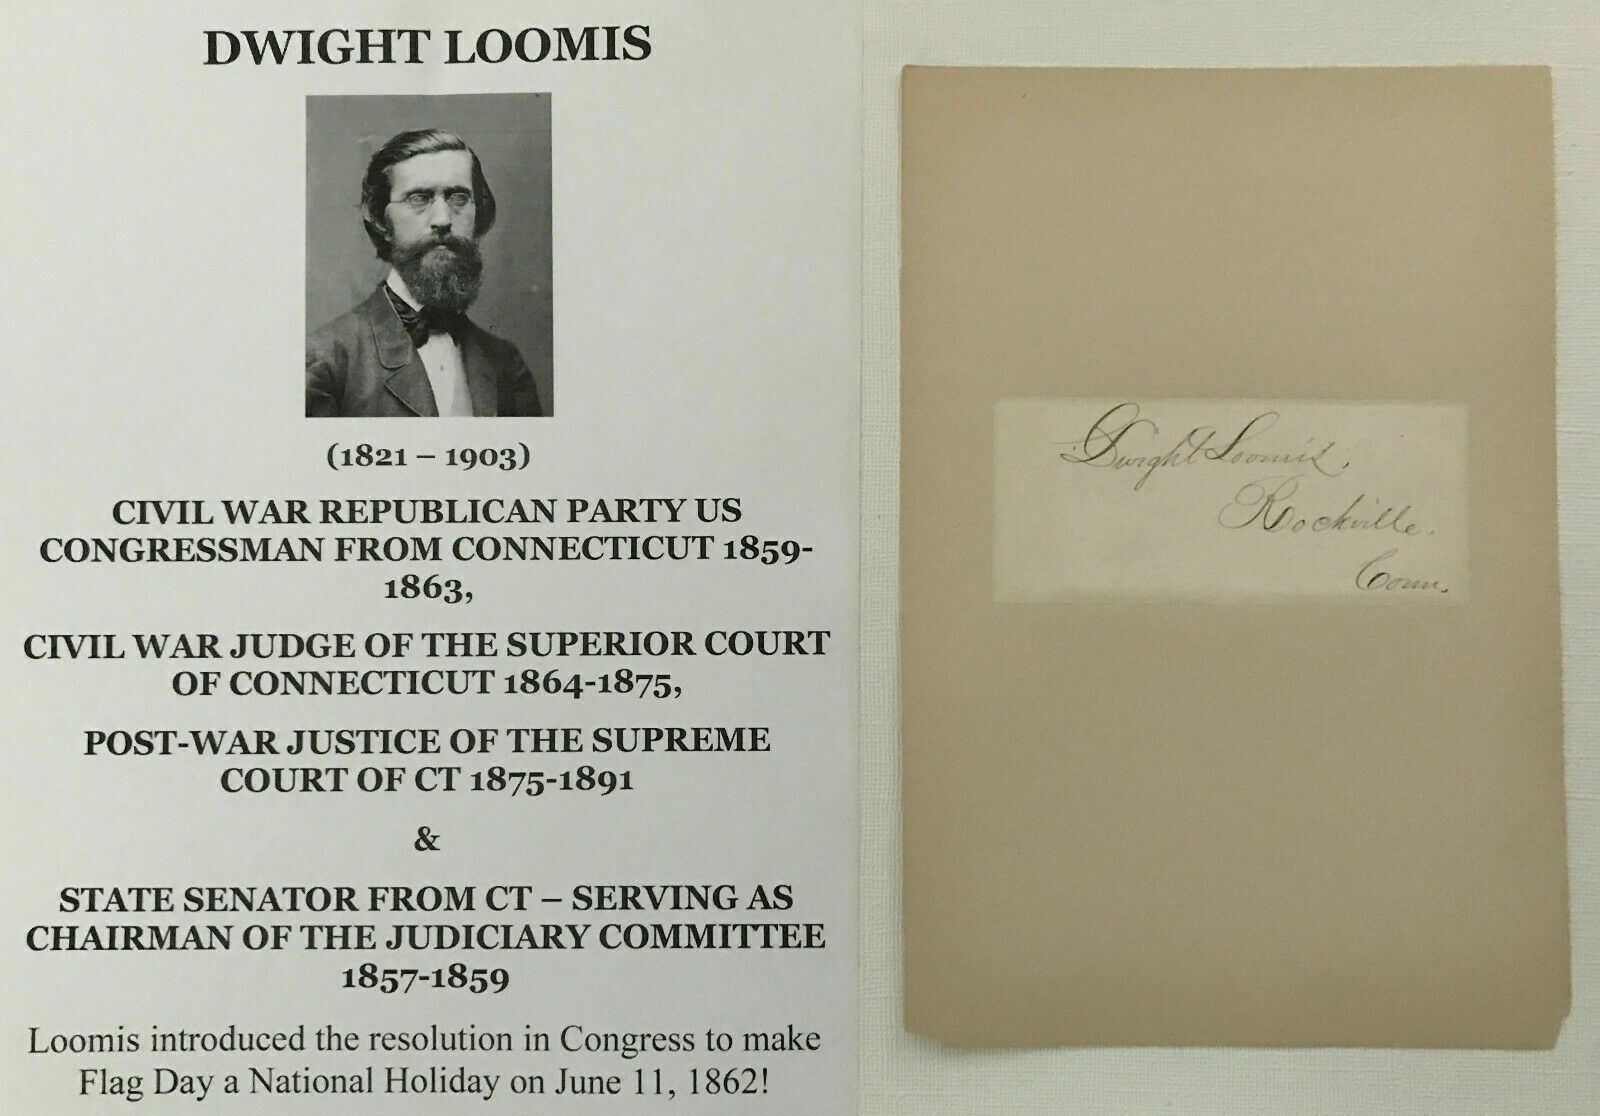 DWIGHT LOOMIS
(1821 – 1903)
CIVIL WAR REPUBLICAN PARTY US
CONGRESSMAN FROM CONNECTICUT 1859-
1863,
CIVIL WAR JUDGE OF THE SUPERIOR COURT
OF CONNECTICUT 1864-1875,
POST-WAR JUSTICE OF THE SUPREME
COURT OF CT 1875-1891
&
STATE SENATOR FROM CT – SERVING AS
CHAIRMAN OF THE JUDICIARY COMMITTEE
1857-1859
Loomis introduced the resolution in Congress to make
Flag Day a National Holiday on June 11, 1862!
Dwight Loomis.
Rockville.
Conn.